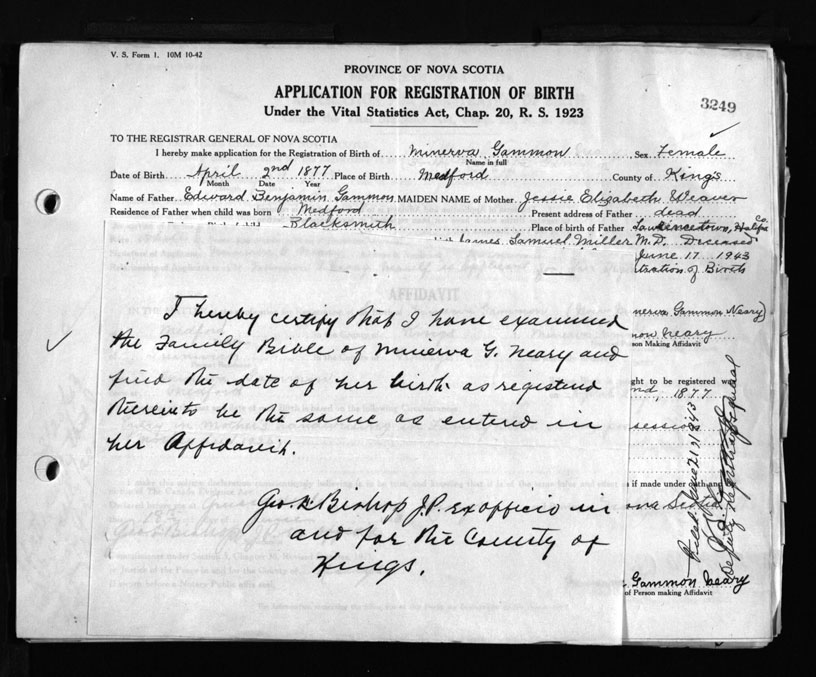 V. S. Form 1. 10M 10-42
PROVINCE OF NOVA SCOTIA
APPLICATION FOR REGISTRATION OF BIRTH
3249
Under the Vital Statistics Act, Chap. 20, R. S. 1923
TO THE REGISTRAR GENERAL OF NOVA SCOTIA
I hereby make application for the Registration of Birth of Minerva Gammon Sex Female
Name in full
Date of Birth April 2nd 1877 Place of Birth Medford County of Kings
Month Date Year
Name of Father Edward Benjamin Gammon MAIDEN NAME of Mother Jessie Elizabeth Weaver
Residence of Father when child was born Medford Present address of Father dead
Blacksmith Place of birth of Father Lawrencetown, Halifax Co.
James Samuel Miller M.D. Deceased
June 17 1943
stration of Birth
AFFIDAVIT
I hereby certify that I have examined
the Family Bible of Minerva G. Neary and
find the date of her birth as registerd
thereinto be the same as entered in
her Affidavit.
Geo. K. Bishop J.P. ex officio in
and for the County of
Kings.
nerva Gammon Neary)
non Neary
son Making Affidavit
ght to be registered was
nd, 1877
session
s if made under oath and
ova Scotia
Gammon Neary
of Person making Affidavit
Deputy Registrar General